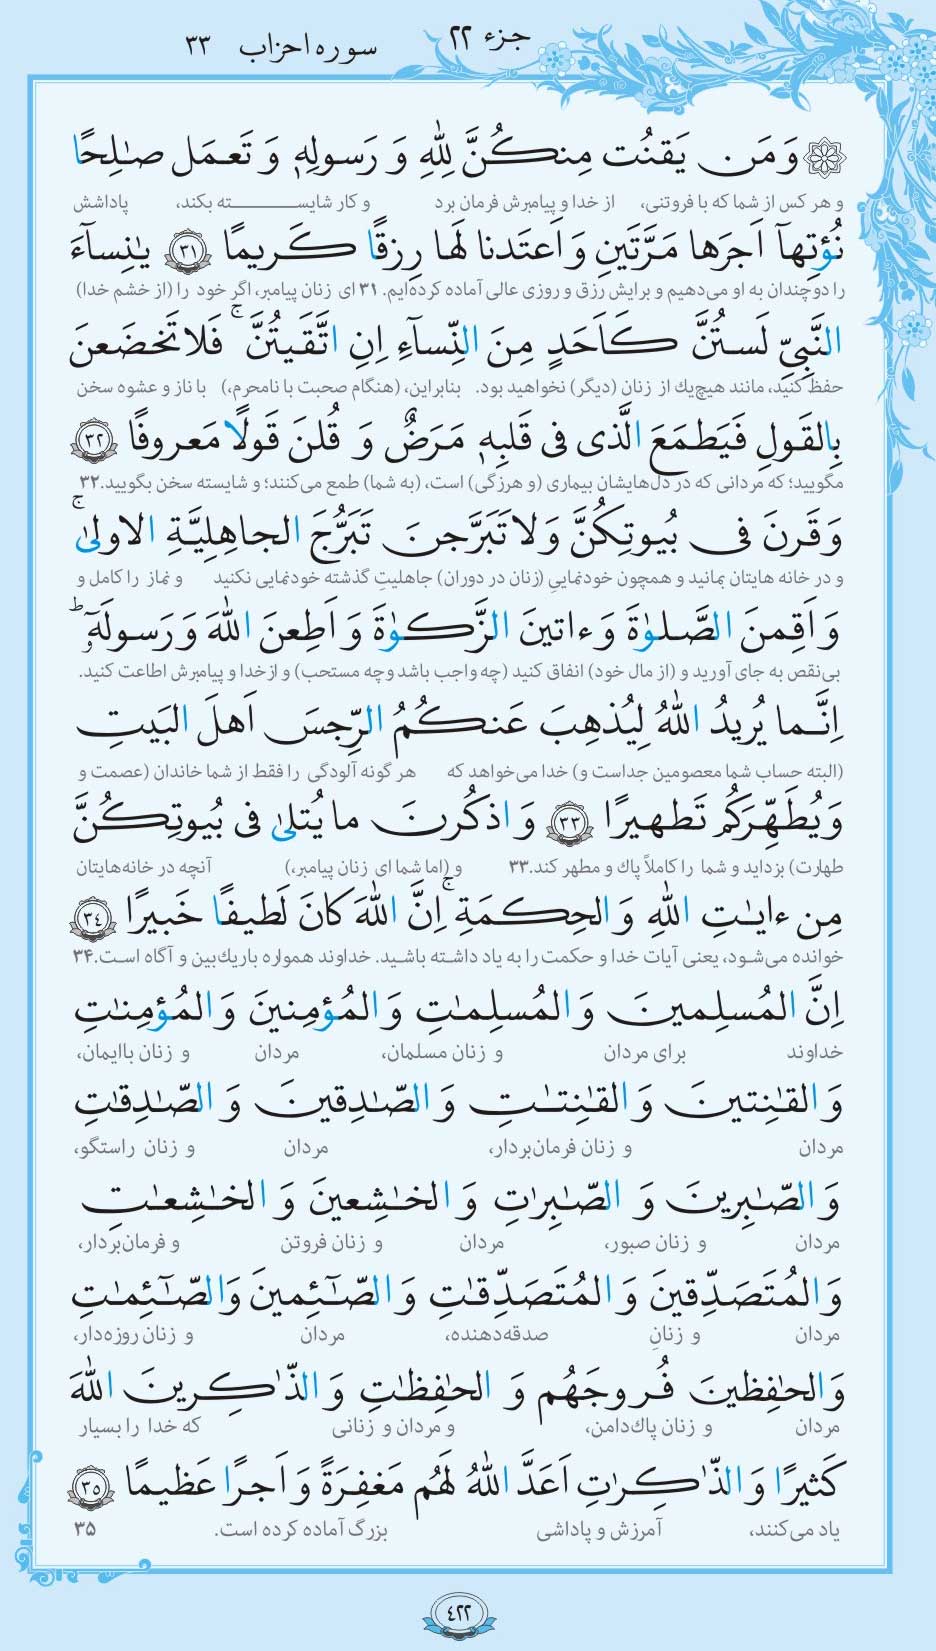 جزء ۲۲
سوره احزاب ۳۳
وَ مَن يَقنُت مِنكُنَّ لِلّٰهِ وَ رَسولِهٖ وَ تَعمَل صالِحًا
و هر کس از شما که با فروتنی، از خدا و پیامبرش فرمان برد و کار شایســـــته بکند، پاداشش
نُؤتِهآ اَجرَها مَرَّتَينِ وَ اَعتَدنا لَها رِزقًا كَريمًا ﴿٣١﴾ يٰنِسآءَ
را دوچندان به او می‌دهیم و برایش رزق و روزی عالی آماده کرده‌ایم. ۳۱ ای زنان پیامبر، اگر خود را (از خشم خدا)
النَّبِیِّ لَستُنَّ كَاَحَدٍ مِنَ النِّسآءِ اِنِ اتَّقَيتُنَّ ۚ فَلا تَخضَعنَ
حفظ کنید، مانند هیچ‌یك از زنان (دیگر) نخواهید بود. بنابراین، (هنگام صحبت با نامحرم،) با ناز و عشوه سخن
بِالقَولِ فَيَطمَعَ الَّذی فی قَلبِهٖ مَرَضٌ وَ قُلنَ قَولًا مَعروفًا ﴿٣٢﴾
مگویید؛ که مردانی که در دل‌هایشان بیماری (و هرزگی) است، (به شما) طمع می‌کنند؛ و شایسته سخن بگویید. ۳۲
وَ قَرنَ فی بُيوتِكُنَّ وَ لا تَبَرَّجنَ تَبَرُّجَ الجاهِلِيَّةِ الاولیٰ ۚ
و در خانه هایتان بمانید و همچون خودنماییِ (زنان در دوران) جاهلیتِ گذشته خودنمایی نکنید و نماز را کامل و
وَ اَقِمنَ الصَّلوٰةَ وَ ءاتينَ الزَّكوٰةَ وَ اَطِعنَ اللّٰهَ وَ رَسولَهٗٓ ۚ ط
بی‌نقص به جای آورید و (از مال خود) انفاق کنید (چه واجب باشد وچه مستحب) و ازخدا و پیامبرش اطاعت کنید.
اِنَّما يُريدُ اللّٰهُ لِيُذهِبَ عَنكُمُ الرِّجسَ اَهلَ البَيتِ
(البته حساب شما معصومین جداست و) خدا می‌خواهد که هر گونه آلودگی را فقط از شما خاندان (عصمت و
وَ يُطَهِّرَكُم تَطهيرًا ﴿٣٣﴾ وَ اذكُرنَ ما يُتلیٰ فی بُيوتِكُنَّ
طهارت) بزداید و شما را کاملاً پاك و مطهر کند. ۳۳ و (اما شما ای زنان پیامبر،) آنچه در خانه‌هایتان
مِن ءايٰتِ اللّٰهِ وَ الحِكمَةِ ۚ اِنَّ اللّٰهَ كانَ لَطيفًا خَبيرًا ﴿٣٤﴾
خوانده می‌شود، یعنی آیات خدا و حکمت را به یاد داشته باشید. خداوند همواره باریك‌بین و آگاه است. ۳۴
اِنَّ المُسلِمينَ وَ المُسلِمٰتِ وَ المُؤمِنينَ وَ المُؤمِنٰتِ
خداوند برای مردان و زنان مسلمان، مردان و زنان باایمان،
وَ القٰنِتينَ وَ القٰنِتٰتِ وَ الصّٰدِقينَ وَ الصّٰدِقٰتِ
مردان و زنان فرمان‌بردار، مردان و زنان راستگو،
وَ الصّٰبِرينَ وَ الصّٰبِرٰتِ وَ الخٰشِعينَ وَ الخٰشِعٰتِ
مردان و زنان صبور، مردان و زنان فروتن و فرمان‌بردار،
وَ المُتَصَدِّقينَ وَ المُتَصَدِّقٰتِ وَ الصّٰٓئِمينَ وَ الصّٰٓئِمٰتِ
مردان و زنانِ صدقه‌دهنده، مردان و زنان روزه‌دار،
وَ الحٰفِظينَ فُروجَهُم وَ الحٰفِظٰتِ وَ الذّٰكِرينَ اللّٰهَ
مردان و زنان پاك‌دامن، و مردان و زنانی که خدا را بسیار
كَثيرًا وَ الذّٰكِرٰتِ اَعَدَّ اللّٰهُ لَهُم مَغفِرَةً وَ اَجرًا عَظيمًا ﴿٣٥﴾
یاد می‌کنند، آمرزش و پاداشی بزرگ آماده کرده است. ۳۵
۴۲۲